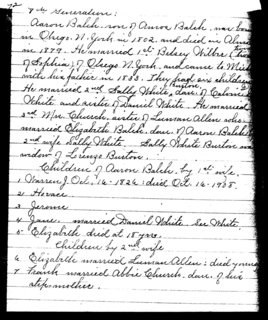 72
7th Generation:
Aaron Balch, son of Aaron Balch, was born
in Otsego, N. York in 1802 and died in
in 1879. He married 1st Betsey Wilbur
of Sophia; of Otsego N. York, and came to Mich
with his father in 1833. They had six children
He married 2nd Sally White, dau. of
White and sister of Daniel White. He married
3rd Mrs. Church, sister of Luman Allen who
married Elizabeth Balch, dau. of Aaron Balch &
2nd wife Sally White. Sally White Burton was
widow of Lorenzo Burton.
Children of Aaron Balch, by 1st wife.
1 Warren J. Oct. 16-1826; died Oct. 16-
2 Horace
3 Jerome
4 Jane. married Daniel White. See White.
5 Elizabeth died at 18 yrs.
Children by 2nd wife
6 Elizabeth married Luman Allen; died young
7 Frank married Abbie Church, dau. of his
step-mother.